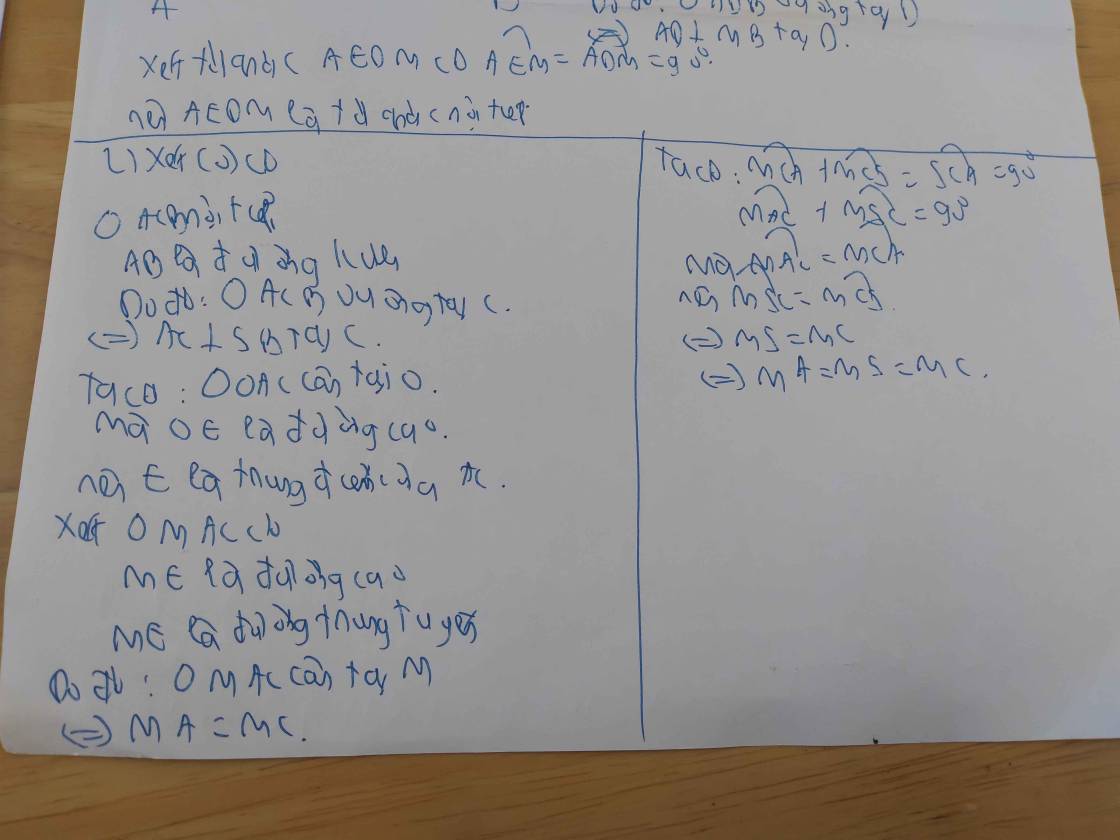 A
Do đó: Δ ADB vuông tại D
⇔ AD ⊥ MB tại D.
Xét tứ giác AEDM có AEM = ADM = 90°.
nên AEDM là tứ giác nội tiếp
2) Xét (O) có
Δ ACB nội tiếp
AB là đường kính
Do đó: Δ ACB vuông tại C.
⇔ AC ⊥ SB tại C.
Ta có: Δ OAC cân tại O.
Mà OE là đường cao.
nên E là trung điểm của AC.
Xét Δ MAC có
ME là đường cao
ME là đường trung tuyến
Do đó: Δ MAC cân tại M
⇔ MA = MC.
Ta có: MCA + MCS = SCA = 90°
MAC + MSC = 90°
Mà MAC = MCA
nên MSC = MCS
⇔ MS = MC
⇔ MA = MS = MC.